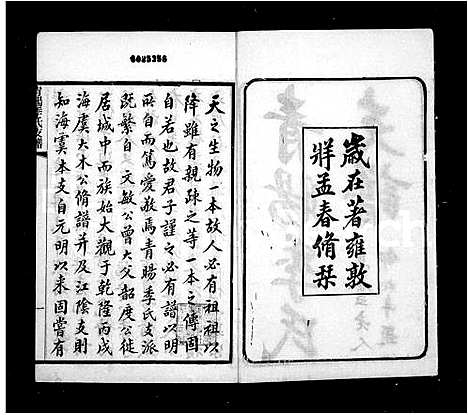 6025356
歲在著雍敦
牂孟春脩栞
天之生物一本故人必有祖祖以
降雖有親疎之等一本之傳固
自若也故君子謹之必有譜以明
所自而篤愛敬焉青暘季氏支派
旣繁自文敏公曾大父韶度公徙
居城中而族始大觀于乾隆丙戌
海虞大木公脩譜并及江陰支則
知海虞本支自元明以來固嘗有